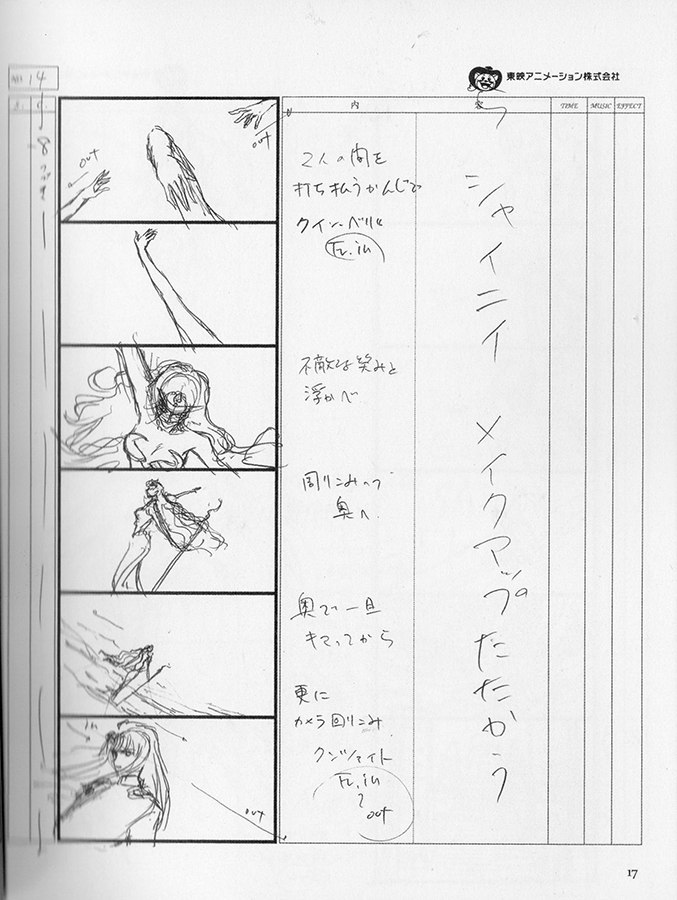 東映アニメーション株式会社
NO. 14
内容
TIME
MUSIC
EFFECT
out
out
2人の間を
打ち払うかんじで
クイン・ベリル
Fr.in
不敵な笑みを
浮かべ
回りこみつつ
奥へ
奥で一旦
キマってから
更に
カメラ回りこみ
クンツァイト
Fr.in
〜
out
in
out
シャイニィ メイクアップ たたかう
17